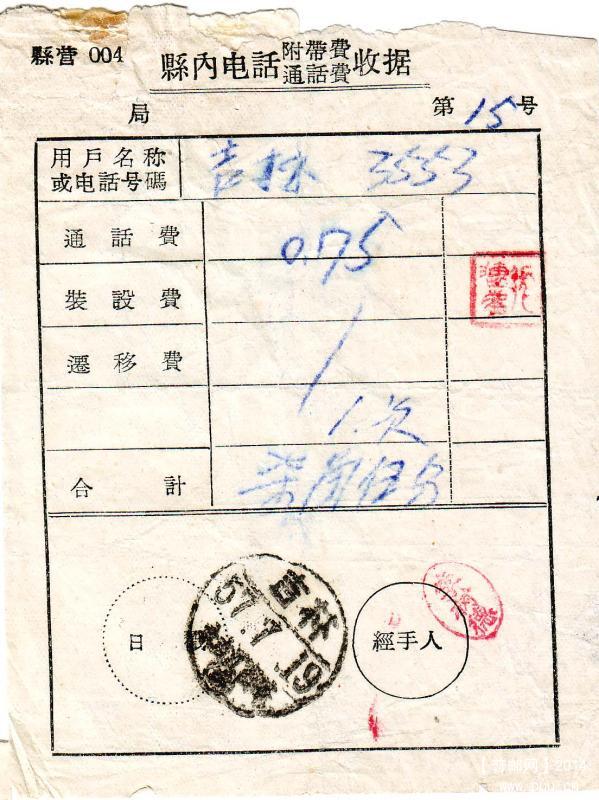 縣营 004
縣内电話附帶費通話費收据
局
第15号
用戶名称或电話号碼
吉林 3553
通話費
0.75
裝設費
遷移費
1次
合計
柒角伍分
吉林
57.7.19
日
經手人